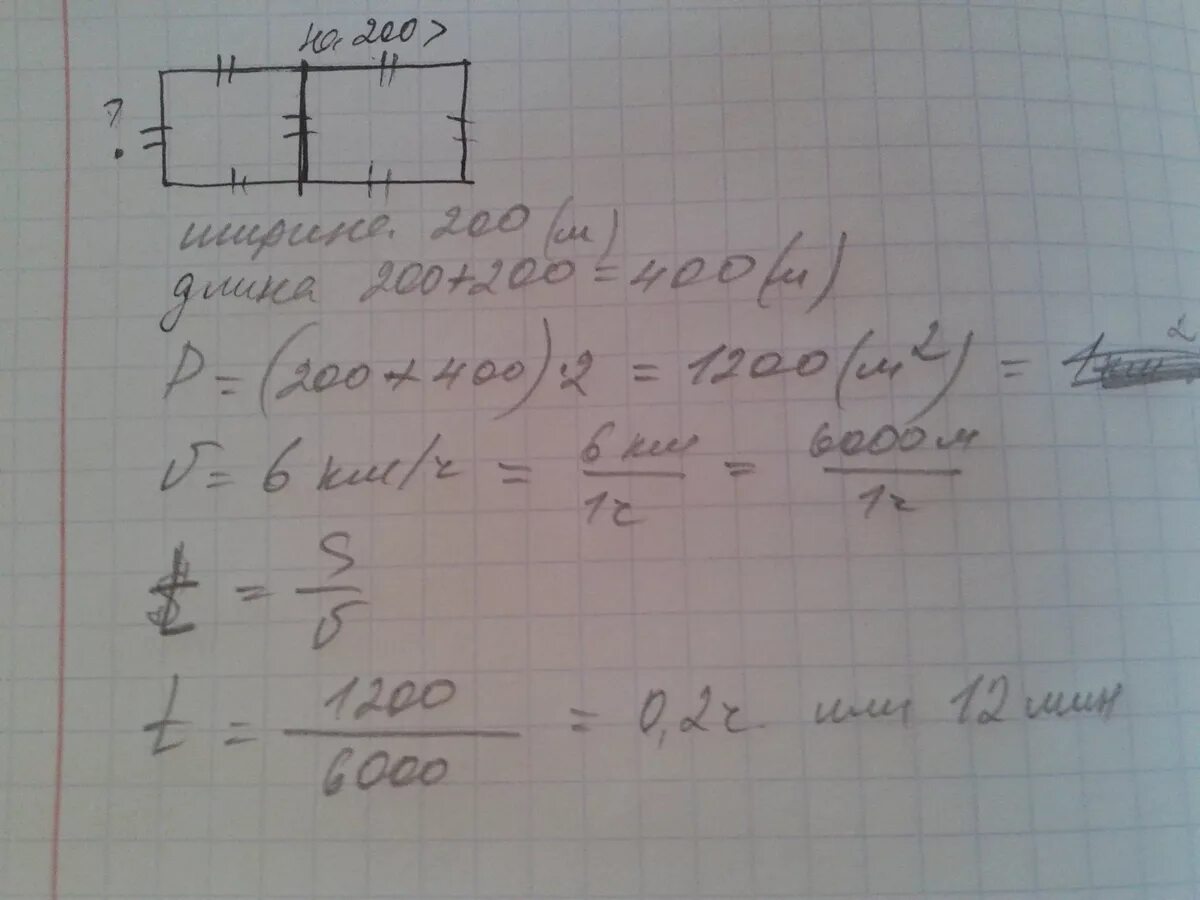 на 200 >
?
ширина 200 (м)
длина 200+200 = 400 (м)
P = (200 + 400) · 2 = 1200 (м²) =
v = 6 км/ч = 6 км / 1ч = 6000 м / 1ч
t = S / v
t = 1200 / 6000 = 0,2ч или 12 мин